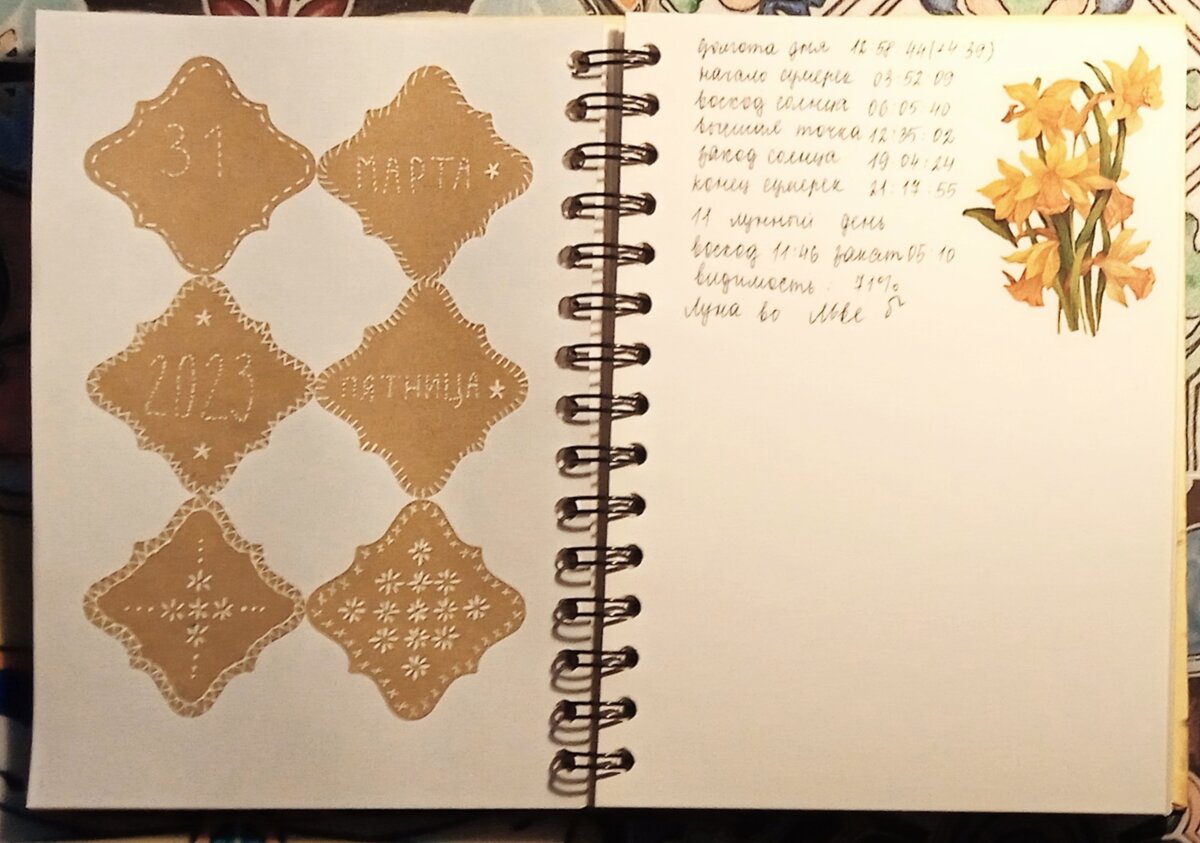 31
МАРТА
2023
ПЯТНИЦА
долгота дня 12:58:44(+4:39)
начало сумерек 03:52:09
восход солнца 06:05:40
высшая точка 12:35:02
заход солнца 19:04:24
конец сумерек 21:17:55
11 лунный день
восход 11:46 закат 05:10
видимость: 71%
Луна во Льве ♌